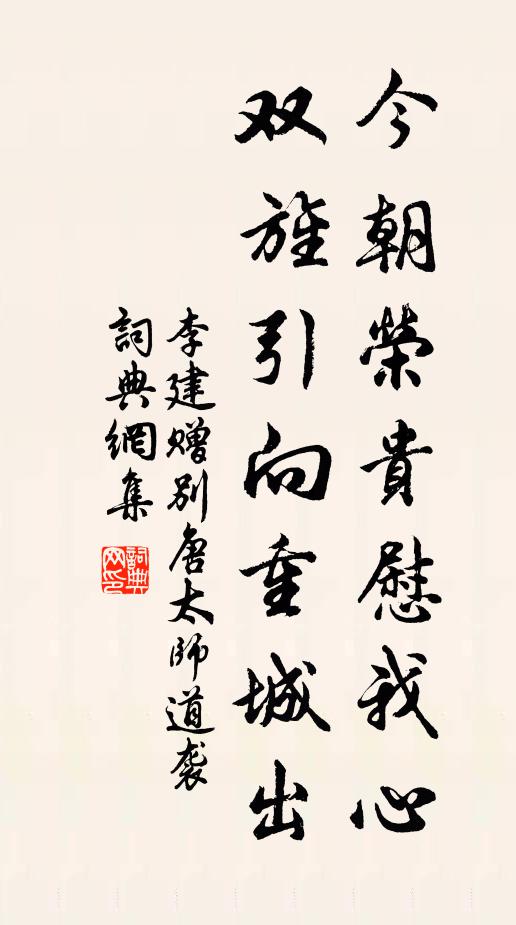 今朝榮貴慰我心
双旌引向重城出
李建赠别唐太師道袭
詞典網集
詞典网印